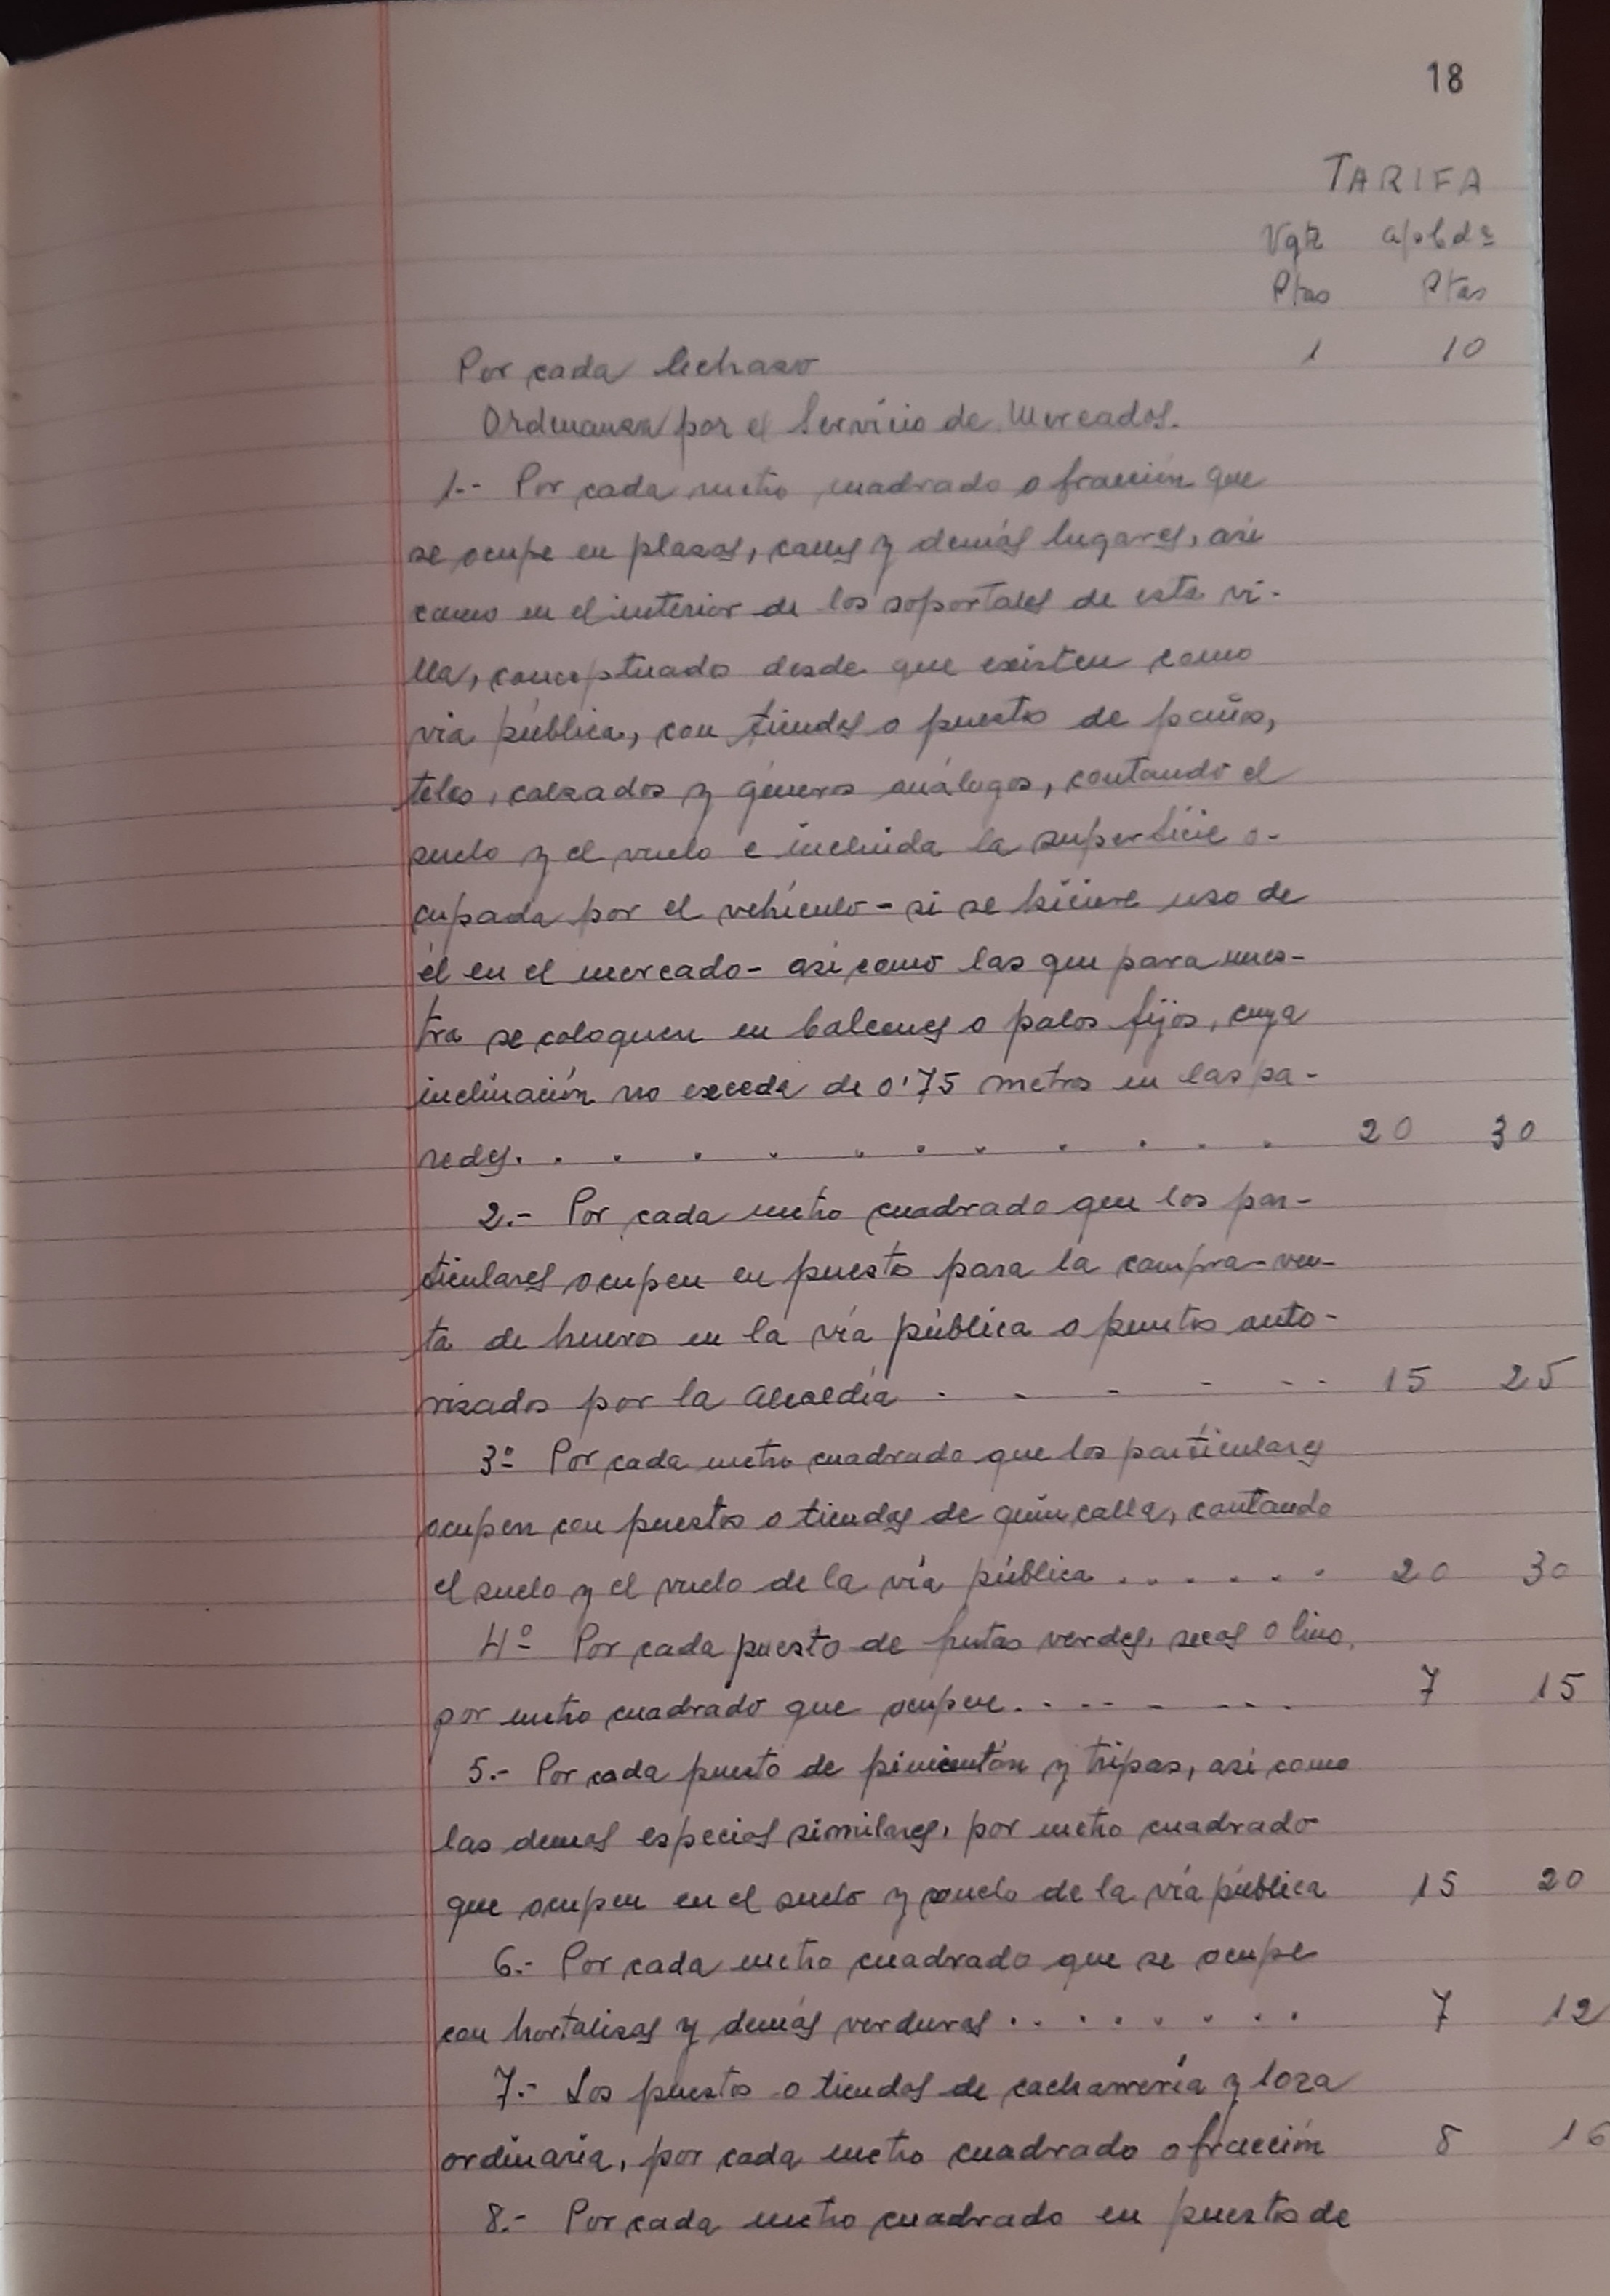 18
TARIFA
Vgte aprbda
Ptas Ptas
Por cada lechazo 1 10
Ordenanza por el Servicio de Mercados.
1.- Por cada metro cuadrado o fracción que
se ocupe en plazas, calles y demás lugares, asi
como en el interior de los soportales de esta vi-
lla, conceptuado desde que existen como
via pública, con tiendas o puestos de paños,
telas, calzados y géneros análogos, contando el
suelo y el vuelo e incluida la superficie o-
cupada por el vehículo - si se hiciere uso de
él en el mercado - asi como las que para mues-
tra se coloquen en balcones o palos fijos, cuya
inclinación no exceda de 0'75 metros en las pa-
redes. . . . . . . . . . . 20 30
2.- Por cada metro cuadrado que los par-
ticulares ocupen en puestos para la compra-ven-
ta de huevos en la vía pública o puntos auto-
rizados por la Alcaldía . - - - - - 15 25
3º Por cada metro cuadrado que los particulares
ocupen con puestos o tiendas de quincalla, contando
el suelo y el vuelo de la vía pública . . . . . . 20 30
4º Por cada puesto de frutas verdes, secas o lino,
por metro cuadrado que ocupen. . - - - - - . 7 15
5.- Por cada puesto de pimentón y tripas, asi como
las demas especias similares, por metro cuadrado
que ocupen en el suelo y vuelo de la vía pública 15 20
6.- Por cada metro cuadrado que se ocupe
con hortalizas y demás verduras . . . . . . . . 7 12
7.- Los puestos o tiendas de cacharrería y loza
ordinaria, por cada metro cuadrado o fracción 8 16
8.- Por cada metro cuadrado en puestos de